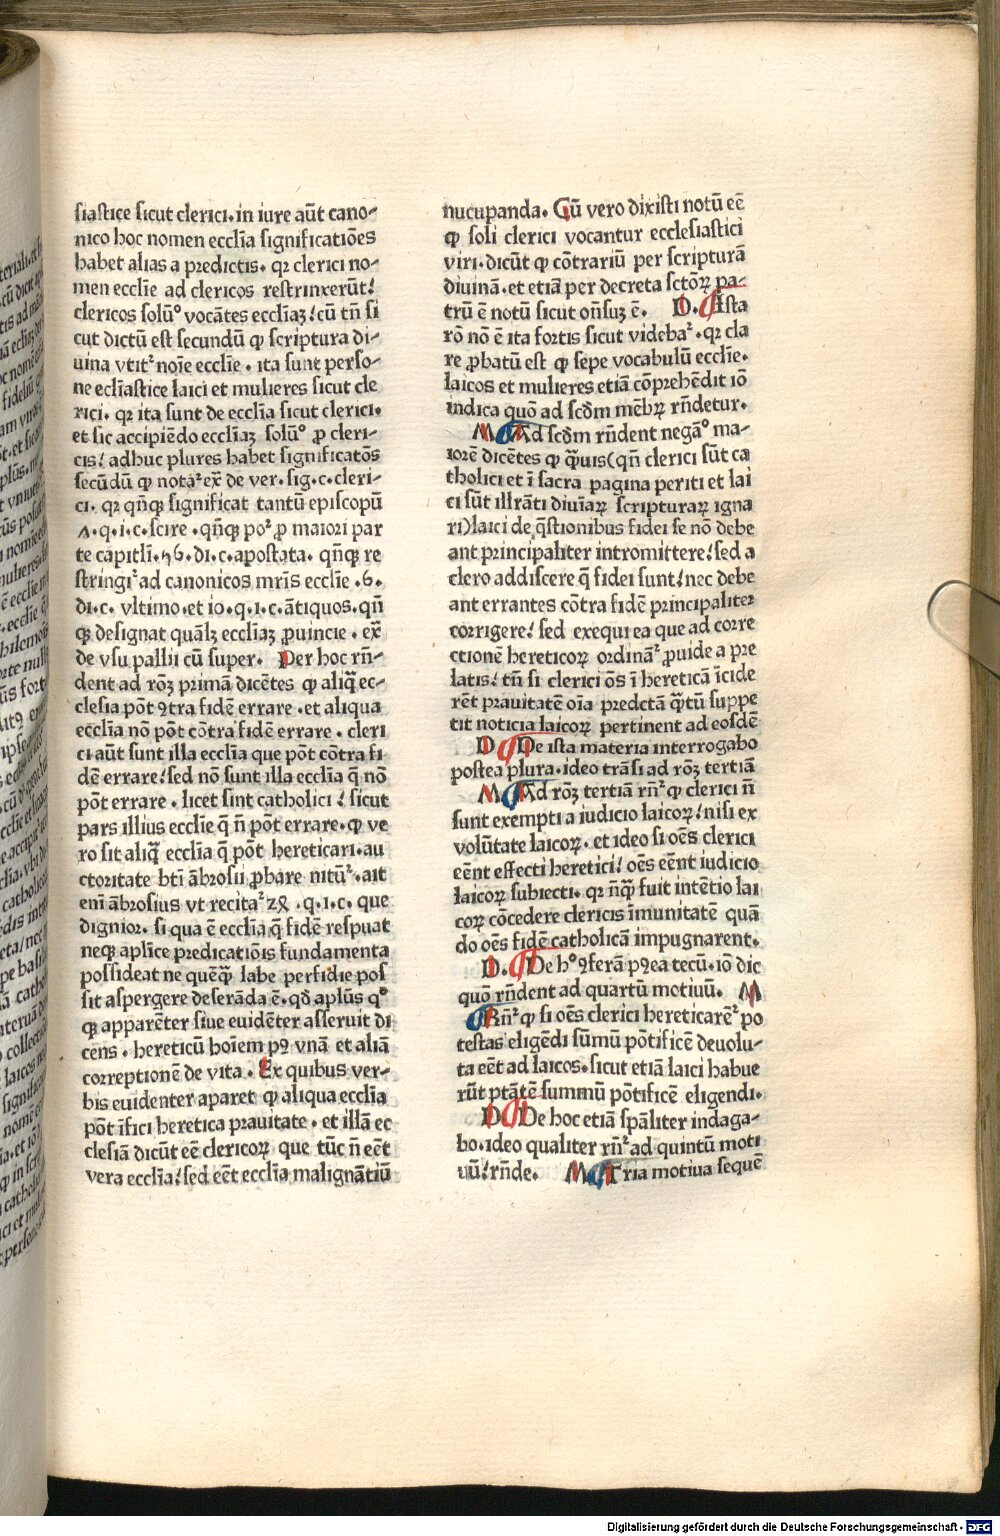 siastice sicut clerici. in iure aūt cano-
nico hoc nomen ecclīa significatiōes
habet alias a predictis. qꝛ clerici no-
men ecclīe ad clericos restrinxerūt!
clericos solūᵒ vocātes ecclīaꝫ! cū tn̄ si
cut dictū est secundū ꝙ scriptura di-
uina vtitᷣ noīe ecclīe. ita sunt perso-
ne eclīastice laici et mulieres sicut cle
rici. qꝛ ita sunt de ecclīa sicut clerici.
et sic accipiēdo ecclīaꝫ solūᵒ ꝓ cleri-
cis! adhuc plures habet significatōs
secūdū ꝙ notaᷣ ex̄ de ver. sig. c. cleri-
ci. qꝛ qn̄qꝫ significat tantū episcopū
ʌ. q. i. c. scire. qn̄qꝫ poᷣ ꝓ maiori par
te capitlī. ʌ6. di. c. apostata. qn̄qꝫ re
stringiᷣ ad canonicos mr̄is ecclīe. 6.
di. c. vltimo. et io. q. i. c. ātiquos. qn̄
qꝫ designat quālꝫ ecclīaꝫ ꝓuincie. ex̄
de vsu pallii cū super. Per hoc rn̄-
dent ad rōꝫ primā dicētes ꝙ aliq̄ ec-
clesia pōt ꝯtra fidē errare. et aliqua
ecclīa nō pōt cōtra fidē errare. cleri
ci aūt sunt illa ecclīa que pōt cōtra fi
dē errare! sed nō sunt illa ecclīa q̄ nō
pōt errare. licet sint catholici! sicut
pars illius ecclīe q̄ n̄ pōt errare. ꝙ ve
ro sit aliq̄ ecclīa q̄ pōt hereticari. au
ctoritate btī ābrosii ꝓbare nitūᷣ. ait
enī ābrosius vt recitaᷣ 2ꝝ. q. i. c. que
dignior. si qua ē ecclīa q̄ fidē respuat
neqꝫ aplīce predicatiōis fundamenta
possideat ne quēꝗ̄ labe perfidie pos
sit aspergere deserāda ē. qd̄ aplūs qᵒ
qꝫ apparēter siue euidēter asseruit di
cens. hereticū hoīem pꝯ vnā et aliā
correptionē de vita. Ex quibus ver-
bis euidenter aparet ꝙ aliqua ecclīa
pōt īfici heretica prauitate. et illā ec
clesiā dicūt eē clericoꝝ que tūc n̄ eēt
vera ecclīa! sed eēt ecclīa malignātiū
nucupanda. Cū vero dixisti notū eē
ꝙ soli clerici vocantur ecclesiastici
viri. dicūt ꝙ cōtrariū per scripturā
diuinā. et etiā per decreta sctōꝝ pa-
trū ē notū sicut on̄suꝫ ē. D. Ista
rō nō ē ita fortis sicut videbaᷣ. qꝛ cla
re ꝓbatū est ꝙ sepe vocabulū ecclīe.
laicos et mulieres etiā cōprehēdit iō
indica quō ad scd̄m mēbꝝ rn̄detur.
M Ad scd̄m rn̄dent negāᵒ ma-
iorē dicētes ꝙ ꝗ̄uis (qn̄ clerici sūt ca
tholici et ī sacra pagina periti et lai
ci sūt illrāti diuīaꝝ scripturaꝝ igna
ri) laici de q̄stionibus fidei se nō debe
ant principaliter intromittere! sed a
clero addiscere q̄ fidei sunt! nec debe
ant errantes cōtra fidē principaliter
corrigere! sed exequi ea que ad corre
ctionē hereticoꝝ ordināᷣ ꝓuide a pre
latis! tn̄ si clerici oēs ī hereticā īcide
rēt prauitatē oīa predctā ꝗ̄tū suppe
tit noticia laicoꝝ pertinent ad eosdē
D De ista materia interrogabo
postea plura. ideo trāsi ad rōꝫ tertiā
M Ad rōꝫ tertiā rn̄ᷣ ꝙ clerici n̄
sunt exempti a iudicio laicoꝝ! nisi ex
volūtate laicoꝝ. et ideo si oēs clerici
eēnt effecti heretici! oēs eēnt iudicio
laicoꝝ subiecti. qꝛ nū̄ꝗ fuit intētio lai
coꝝ cōcedere clericis īmunitatē quā
do oēs fidē catholicā impugnarent.
D. De hᵒ ꝯferā pꝯea tecū. iō dic
quō rn̄dent ad quartū motiuū. M
Rn̄ᷣ ꝙ si oēs clerici hereticarēᷣ po
testas eligēdi sūmū pōtificē deuolu-
ta eēt ad laicos. sicut etiā laici habue
rūt ptātē summū pōtificē eligendi.
D De hoc etiā spāliter indaga-
bo. ideo qualiter rn̄ᷣ ad quintū moti
uū! rn̄de. M Tria motiua sequē
Digitalisierung gefördert durch die Deutsche Forschungsgemeinschaft - DFG